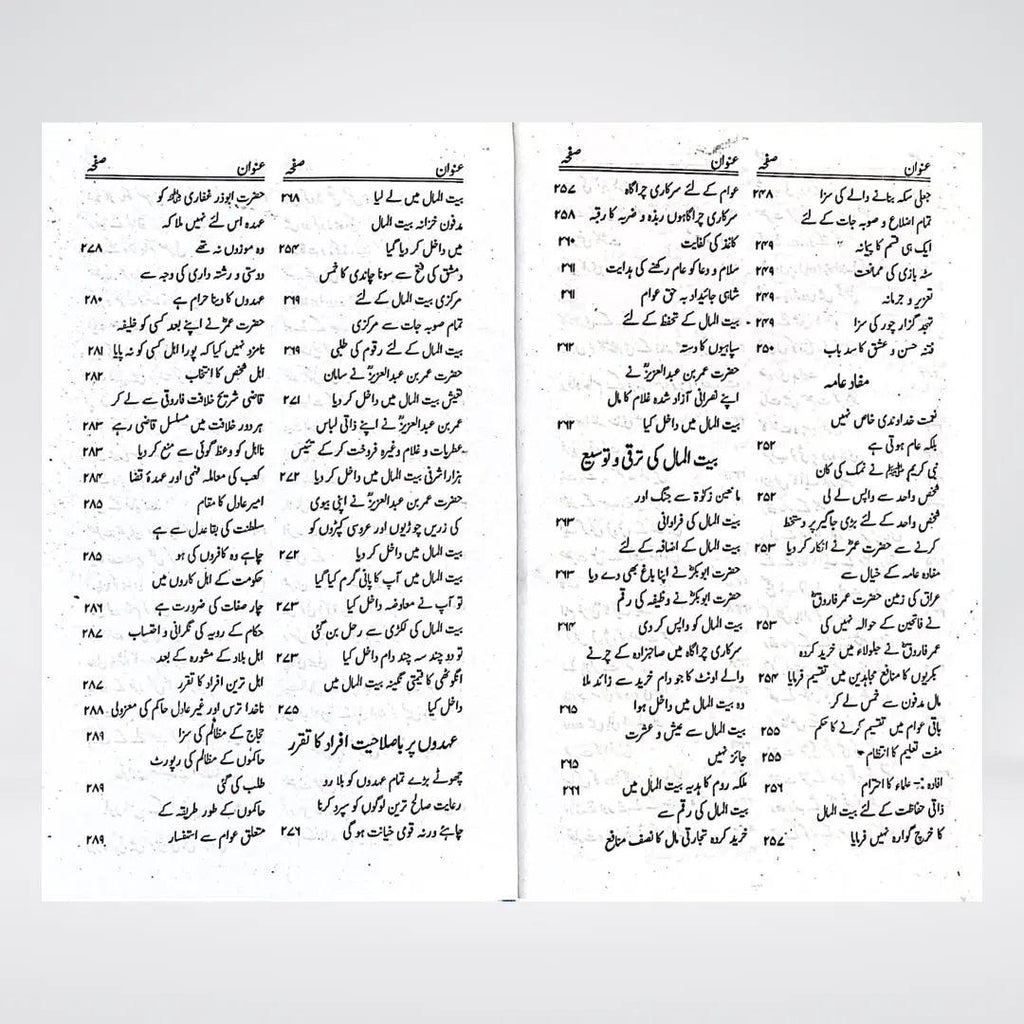 عنوان صفحہ
جعلی سکہ بنانے والے کی سزا ۲۴۸
تمام اضلاع و صوبہ جات کے لئے
ایک ہی قسم کا پیمانہ " ۲۴۹
سٹہ بازی کی ممانعت ۲۴۹
تعزیر و جرمانہ ۲۴۹
تہجد گزار چور کی سزا ۲۴۹
فتنہ حسن و عشق کا سد باب ۲۵۰
مفاد عامہ
نعمت خداوندی خاص نہیں
بلکہ عام ہوتی ہے ۲۵۲
نبی کریم ﷺ نے نمک کی کان
شخص واحد سے واپس لے لی ۲۵۲
شخص واحد کے لئے بڑی جاگیر پر دستخط
کرنے سے حضرت عمرؓ نے انکار کر دیا ۲۵۳
مفادہ عامہ کے خیال سے
عراق کی زمین حضرت عمر فاروقؓ
نے فاتحین کے حوالہ نہیں کی ۲۵۳
عمر فاروقؓ نے جلولاء میں خرید کردہ
بکریوں کا منافع مجاہدین میں تقسیم فرمایا ۲۵۴
مال مدفون سے خمس لے کر
باقی عوام میں تقسیم کرنے کا حکم ۲۵۵
مفت تعلیم کا انتظام ۲۵۵
افادہ :- علماء کا احترام ۲۵۶
ذاتی حفاظت کے لئے بیت المال
کا خرچ گوارہ نہیں فرمایا ۲۵۷
عنوان صفحہ
عوام کے لئے سرکاری چراگاہ ۲۵۷
سرکاری چراگاہوں ربذہ و ضریہ کا رقبہ ۲۵۸
کاغذ کی کفایت ۲۶۰
سلام و دعا کو عام رکھنے کی ہدایت ۲۶۱
شاہی جائیداد بہ حق عوام ۲۶۱
بیت المال کے تحفظ کے لئے
سپاہیوں کا دستہ ۲۶۲
حضرت عمر بن عبدالعزیزؒ نے
اپنے نصرانی آزاد شدہ غلام کا مال
بیت المال میں داخل کیا ۲۶۲
بیت المال کی ترقی و توسیع
مانعین زکوٰۃ سے جنگ اور
بیت المال کی فراوانی ۲۶۳
بیت المال کے اضافہ کے لئے
حضرت ابو بکرؓ نے اپنا باغ بھی دے دیا ۲۶۳
حضرت ابو بکرؓ نے وظیفہ کی رقم
بیت المال کو واپس کر دی ۲۶۴
سرکاری چراگاہ میں صاحبزادہ کے چرنے
والے اونٹ کا جو دام خرید سے زائد ملا
وہ بیت المال میں داخل ہوا ۲۶۵
بیت المال سے عیش و عشرت
جائز نہیں ۲۶۵
ملکہ روم کا ہدیہ بیت المال میں ۲۶۶
بیت المال کی رقم سے
خرید کردہ تجارتی مال کا نصف منافع
عنوان صفحہ
بیت المال میں لے لیا ۲۶۸
مدفون خزانہ بیت المال
میں داخل کر دیا گیا
دمشق کی فتح سے سونا چاندی کا خمس
مرکزی بیت المال کے لئے ۲۶۹
تمام صوبہ جات سے مرکزی
بیت المال کے لئے رقوم کی طلبی ۲۶۹
حضرت عمر بن عبدالعزیزؒ نے سامان
تعیش بیت المال میں داخل کر دیا ۲۷۱
عمر بن عبدالعزیزؒ نے اپنے ذاتی لباس
عطریات و غلام وغیرہ فروخت کر کے تئیس
ہزار اشرفی بیت المال میں داخل کر دی ۲۷۲
حضرت عمر بن عبدالعزیزؒ نے اپنی بیوی
کی زریں چوڑیوں اور عروسی کپڑوں کو
بیت المال میں داخل کر دیا ۲۷۲
بیت المال میں آپ کا پانی گرم کیا گیا
تو آپ نے معاوضہ داخل کیا ۲۷۳
بیت المال کی لکڑی سے رحل بن گئی
تو دو چند سہ چند دام داخل کیا ۲۷۳
انگوٹھی کا قیمتی نگینہ بیت المال میں
داخل کیا ۲۷۵
عہدوں پر باصلاحیت افراد کا تقرر
چھوٹے بڑے تمام عہدوں کو بلا رو
رعایت صالح ترین لوگوں کو سپرد کرنا
چاہئے ورنہ قومی خیانت ہو گی ۲۷۶
عنوان صفحہ
حضرت ابوذر غفاری کو
عہدہ اس لئے نہیں ملا کہ
وہ موزوں نہ تھے ۲۷۸
دوستی و رشتہ داری کی وجہ سے
عہدوں کا دینا حرام ہے ۲۸۰
حضرت عمرؓ نے اپنے بعد کسی کو خلیفہ
نامزد نہیں کیا کہ پورا اہل کسی کو نہ پایا ۲۸۱
اہل شخص کا انتخاب ۲۸۲
قاضی شریح خلافت فاروقی سے لے کر
ہر دور خلافت میں مسلسل قاضی رہے ۲۸۳
نااہل کو وعظ گوئی سے منع کر دیا ۲۸۳
کعب کی معاملہ فہمی اور عہدۂ قضا ۲۸۴
امیر عادل کا مقام ۲۸۵
سلطنت کی بقا عدل سے ہے
چاہے وہ کافروں کی ہو ۲۸۵
حکومت کے اہل کاروں میں
چار صفات کی ضرورت ہے ۲۸۶
حکام کے رویہ کی نگرانی و احتساب ۲۸۷
اہل بلاد کے مشورہ کے بعد
اہل ترین افراد کا تقرر ۲۸۷
ناخدا ترس اور غیر عادل حاکم کی معزولی ۲۸۸
حجاج کے مظالم کی سزا ۲۸۹
حاکموں کے مظالم کی رپورٹ
طلب کی گئی ۲۸۹
حاکموں کے طور طریقہ کے
متعلق عوام سے استفسار ۲۸۹